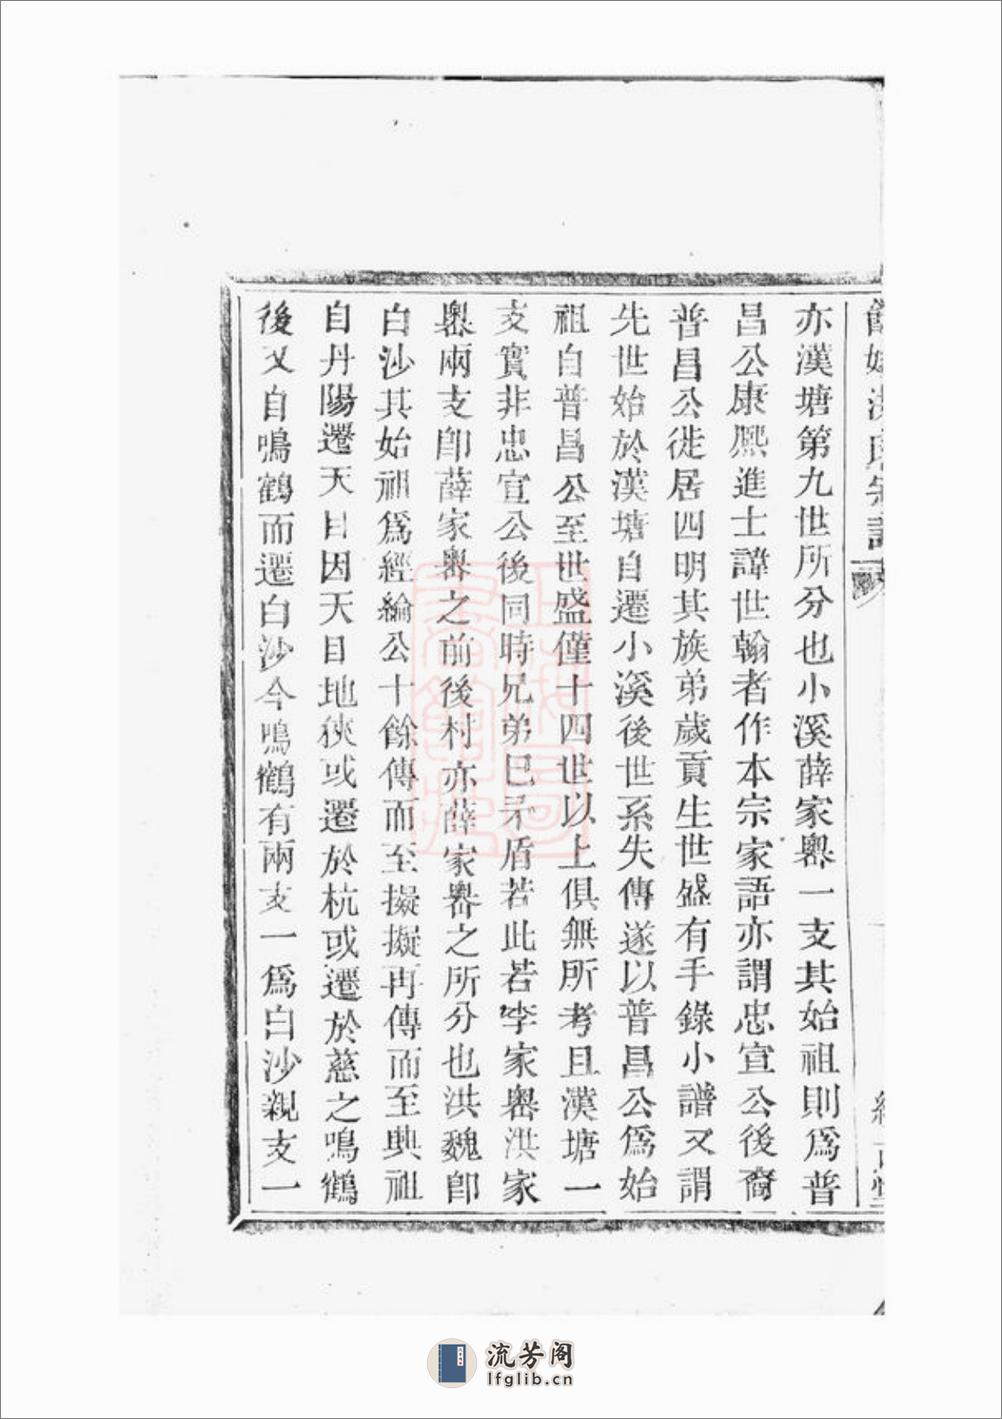 亦漢塘第九世所分也小溪薛家嶴一支其始祖則爲普
昌公康熙進士諱世翰者作本宗家語亦謂忠宣公後裔
普昌公徙居四明其族弟歲貢生世盛有手錄小譜又謂
先世始於漢塘自遷小溪後世系失傳遂以普昌公爲始
祖自普昌公至世盛僅十四世以上俱無所考且漢塘一
支實非忠宣公後同時兄弟已矛盾若此若李家嶴洪家
嶴兩支卽薛家嶴之前後村亦薛家嶴之所分也洪魏卽
白沙其始祖爲經綸公十餘傳而至擬擬再傳而至典祖
自丹陽遷天目因天目地狹或遷於杭或遷於慈之鳴鶴
後又自鳴鶴而遷白沙今鳴鶴有兩支一爲白沙親支一
流芳阁
lfglib.cn